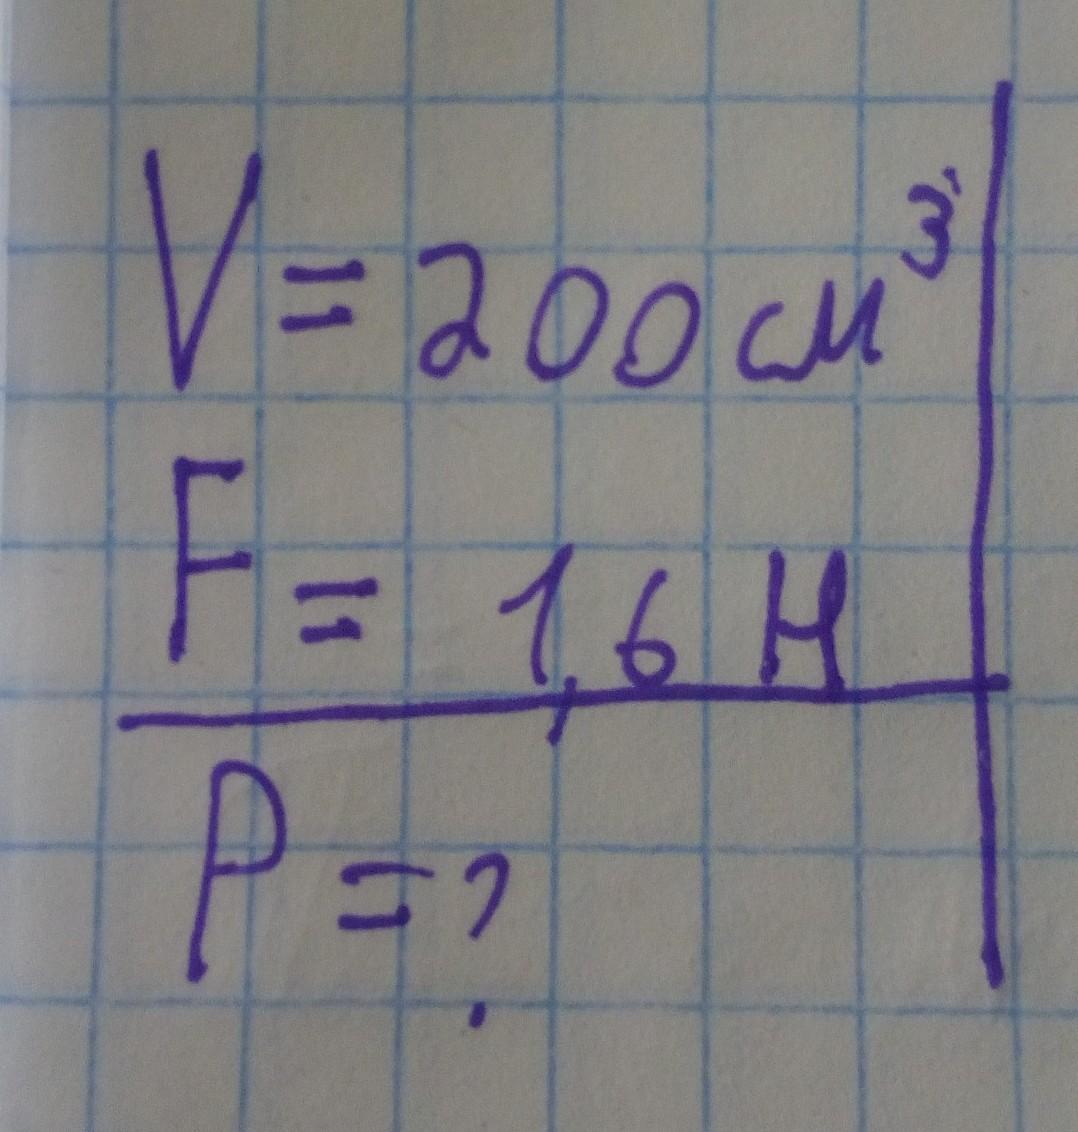 V = 200 см³
F = 1,6 Н
P = ?